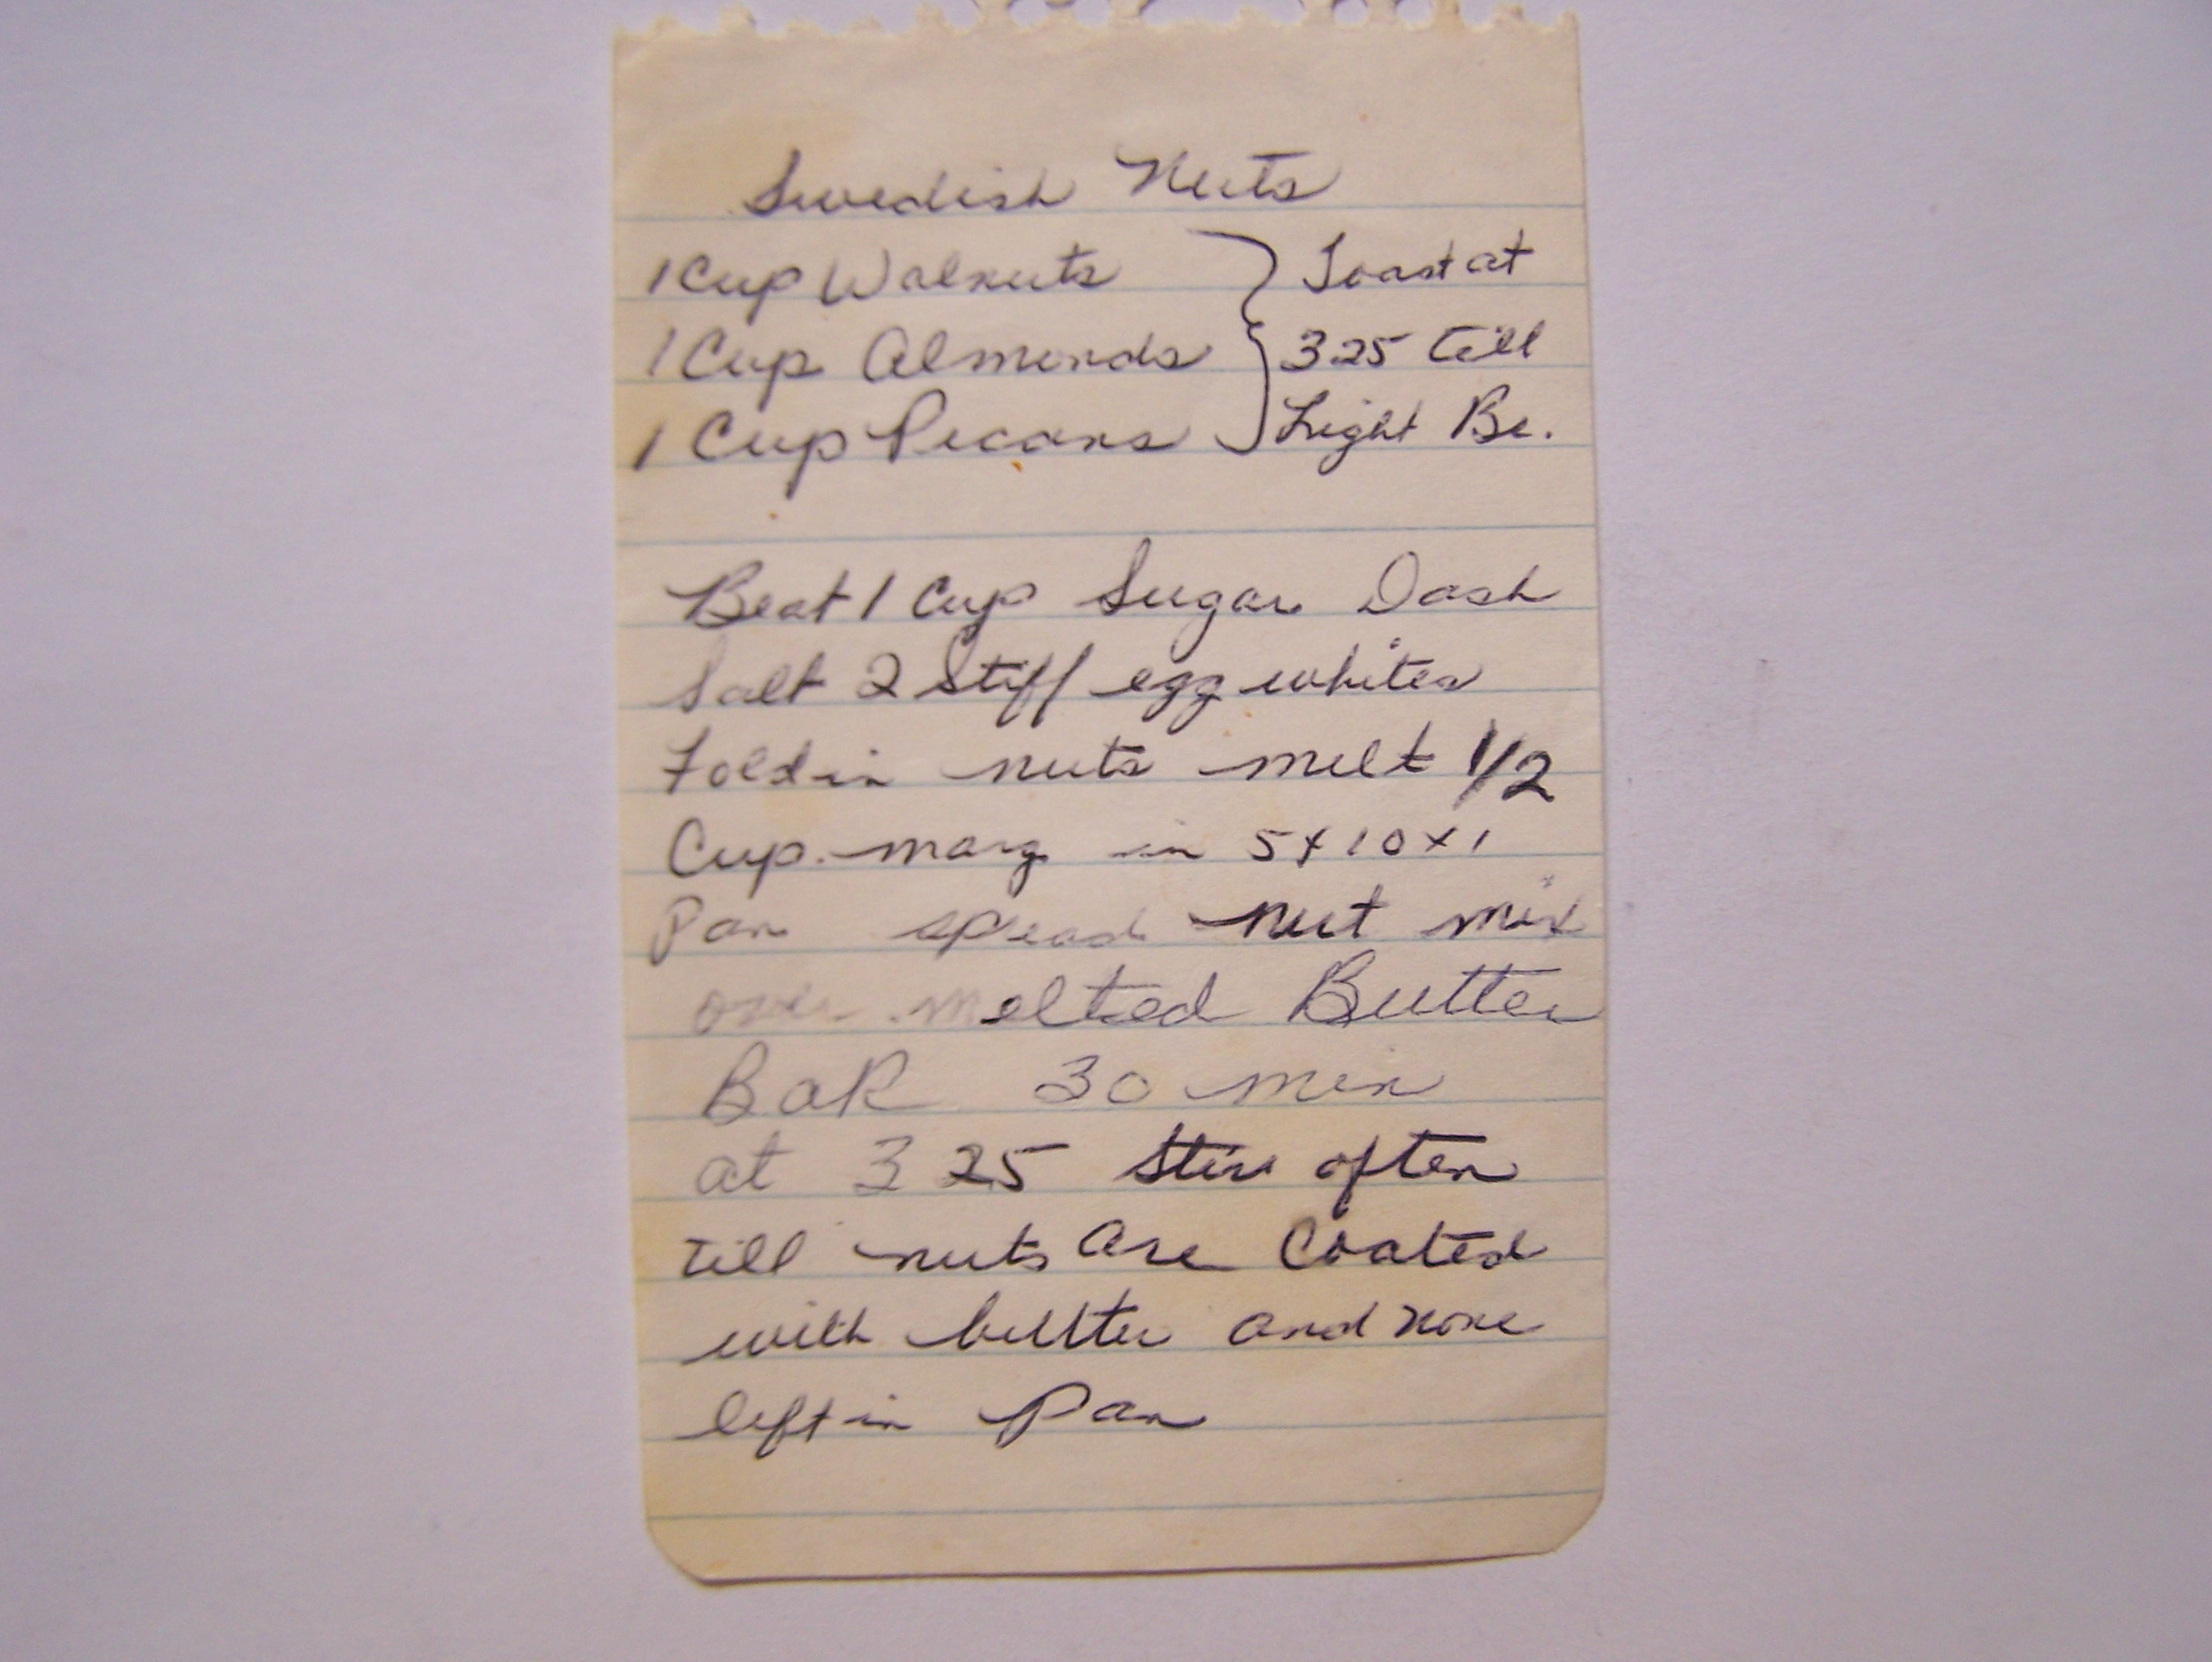 Swedish Nuts
1 Cup Walnuts } Toast at
1 Cup Almonds } 325 till
1 Cup Pecans } Light Br.
Beat 1 Cup Sugar Dash
Salt 2 Stiff egg whites
Fold in nuts melt 1/2
Cup marg in 5x10x1
Pan spread nut mix
over melted Butter
BaK 30 min
at 325 Stir often
till nuts are Coated
with butter and none
left in Pan